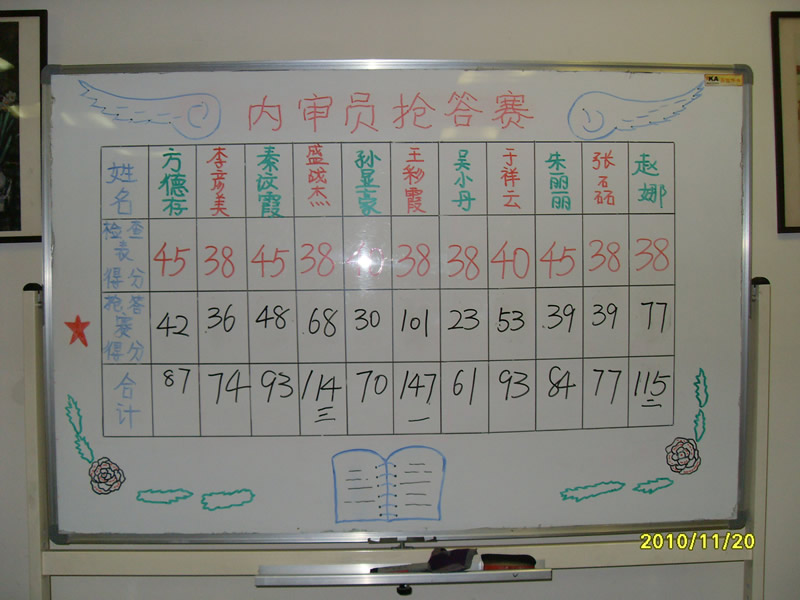 内审员抢答赛
姓名 方德存 李彦美 秦汶霞 盛战杰 王彩霞 吴小丹 于祥云 朱丽丽 赵娜
检查表得分 45 38 45 38 38 38 40 45 38 38
抢答赛得分 42 36 48 68 30 101 23 53 39 39 77
合计 87 74 93 114 三 70 147 一 61 93 84 77 115 二
2010/11/20